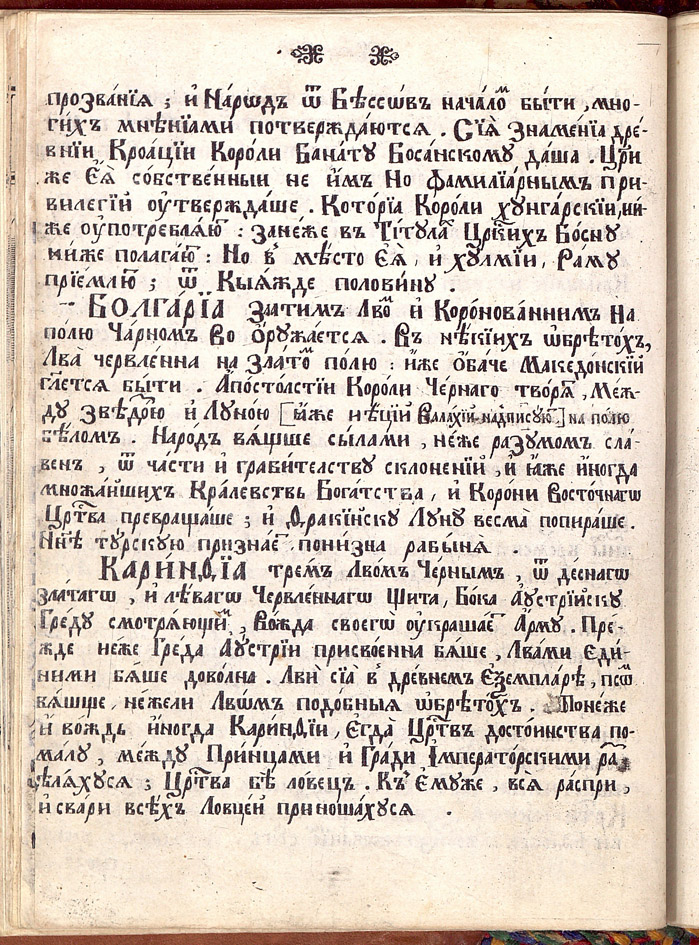 прозва́нїѧ ; и҆ На́рѡдъ ѿ Бѣ́ссѡвъ нача́лоⷨ бы́ти , мно-
ги́хъ мнѣ́нїами потвержда́ютсѧ . Сїѧ̀ Зна́менїа дре́-
внїи Кроа́цїи Коро́ли Бана́ту Боса́нскому да́ша . Цр҃и
же Еѧ̀ со́бственныи не и҆̀мъ Но фамилїа́рнымъ при-
виле́гїй оу҆твержда́ше . Кото́рїа Коро́ли хунга́рскїи, ни́-
же оу҆потреблѧ́юⷮ : зане́же въ Ті́тулаⷯ Цр҃кихъ Бо́сну
ни́же полага́юⷮ : Но в мѣ́сто Еѧ̀ , и҆ ху́лмїи , Ра́му
прїе́млюⷮ ; ѿ Кыѧ́жде полови́ну
БОЛГА́РЇА зла́тимъ Лвоⷨ и҆ Коро́нованнимъ На
по́лю Ча́рномъ Во ѻ҆рꙋжа́етсѧ . Въ нѣ́кїихъ ѡ҆брѣто́хъ,
Лва̀ червле́нна на зла́тоⷨ по́лю : и҆́же ѻ҆ба́че Македо́нскїй
гл҃етсѧ бы́ти . Апо́столстїи Коро́ли Че́рнаго тво́рѧⷮ , Ме́ж-
ду звѣ́доⷨю и҆ Луно́ю [ ꙗ҆́же нѣ́цїи Вала́хїи надписꙋ́юⷮ ] на по́лю
бѣ́ломъ . Наро́дъ вѧ́щше сы́лами , не́же ра́зꙋмомъ сла́-
венъ , ѿ части и҆ граби́телствꙋ склоне́нїй , и҆ ꙗ҆́же и҆ногда
множа́йшихъ Кра́левствъ Бога́тства , и҆ Коро́ни Восто́чнагѡ
Цр҃тва превраща́ше ; и҆ Ѳраки́йскꙋ Лунꙋ весма̀ попира́ше .
Нн҃ѣ тꙋ́рскую призна́еⷮ пони́зна рабы́нѧ .
КАРИ́НѲЇА тре́мъ Лво́мъ Че́рнымъ , ѿ десна́гѡ
зла́тагѡ , и҆ лѣ́вагѡ Червле́ннагѡ Щита̀ , Бо́ка Аѵстрі́йскꙋ
Греду смотрѧ́ющиⷨ , Во́жда своегѡ̀ оу҆краша́еⷮ А́рму . Пре́-
жде не́же Греда Аѵ́стрїи присво́енна бѧ́ше , Лва́ми Еди́-
ними бѧ́ше дово́лна . Лви́ сїа̀ в дре́внемъ Еѯемпла́рѣ , псѡⷨ
вѧ́щше , не́жели Лвѡ́мъ подо́бныѧ ѡ҆брѣто́хъ . Поне́же
и҆ во́ждь и҆́ногда Кари́нѳїи , Егда̀ Цр҃твъ досто́инства по-
ма́лу , ме́ждꙋ При́нцами и҆ Гра́ди Імперато́рскими раⷥ-
дѣлѧ́хусѧ ; Цр҃тва бѣ̀ ло́вецъ . Къ Емꙋ́же , всѧ̀ ра́спри ,
и҆ свари всѣ́хъ Ловце́й приноша́хусѧ .